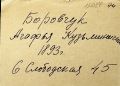 Боровчук
Агафья Кузьминична
1893г.
6 Слободская 45